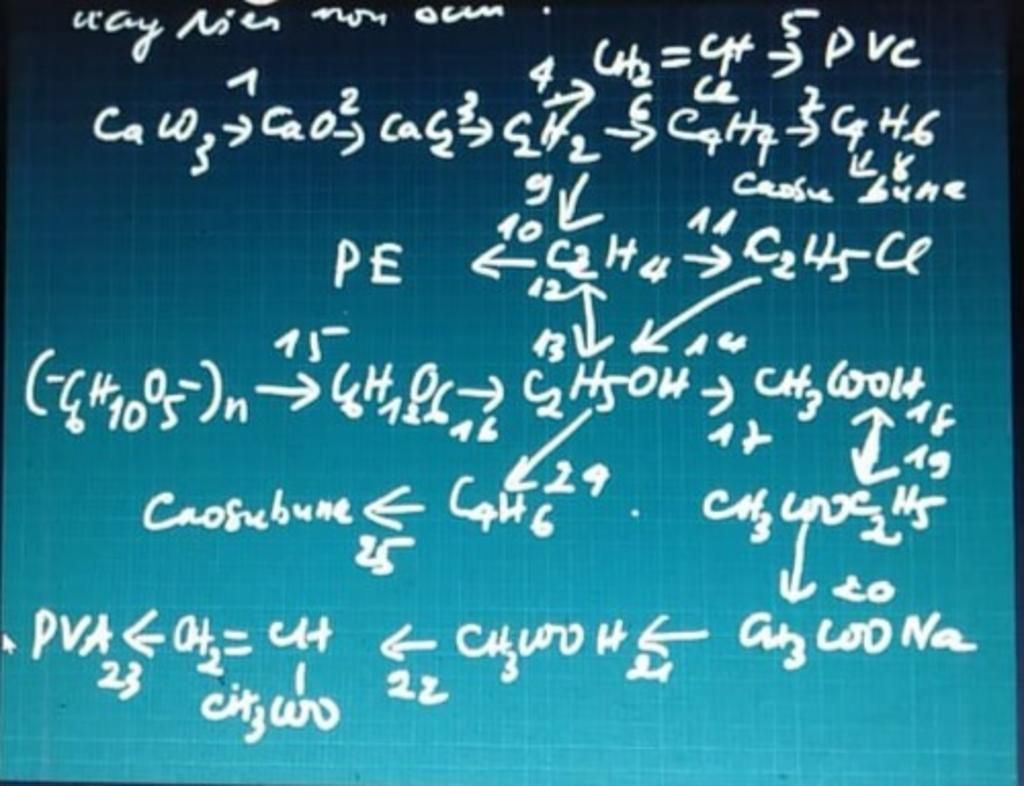 CH₂ = CH →5 PVC
Cl
CaCO₃ →1 CaO →2 CaC₂ →3 C₂H₂ →4 →6 C₄H₄ →7 C₄H₆
9 ↓ Caosu ↙ 8 buna
PE ←10 C₂H₄ →11 C₂H₅-Cl
12 ↕ 13 ↙ 14
(-C₆H₁₀O₅-)n →15 C₆H₁₂O₆ →16 C₂H₅OH →17 CH₃COOH
↕ 18 19
Caosubuna ←25 C₄H₆ ↙ 24 . CH₃COOC₂H₅
↓ 20
PVA ←23 CH₂ = CH ←22 CH₃COOH ←21 CH₃COONa
CH₃COO